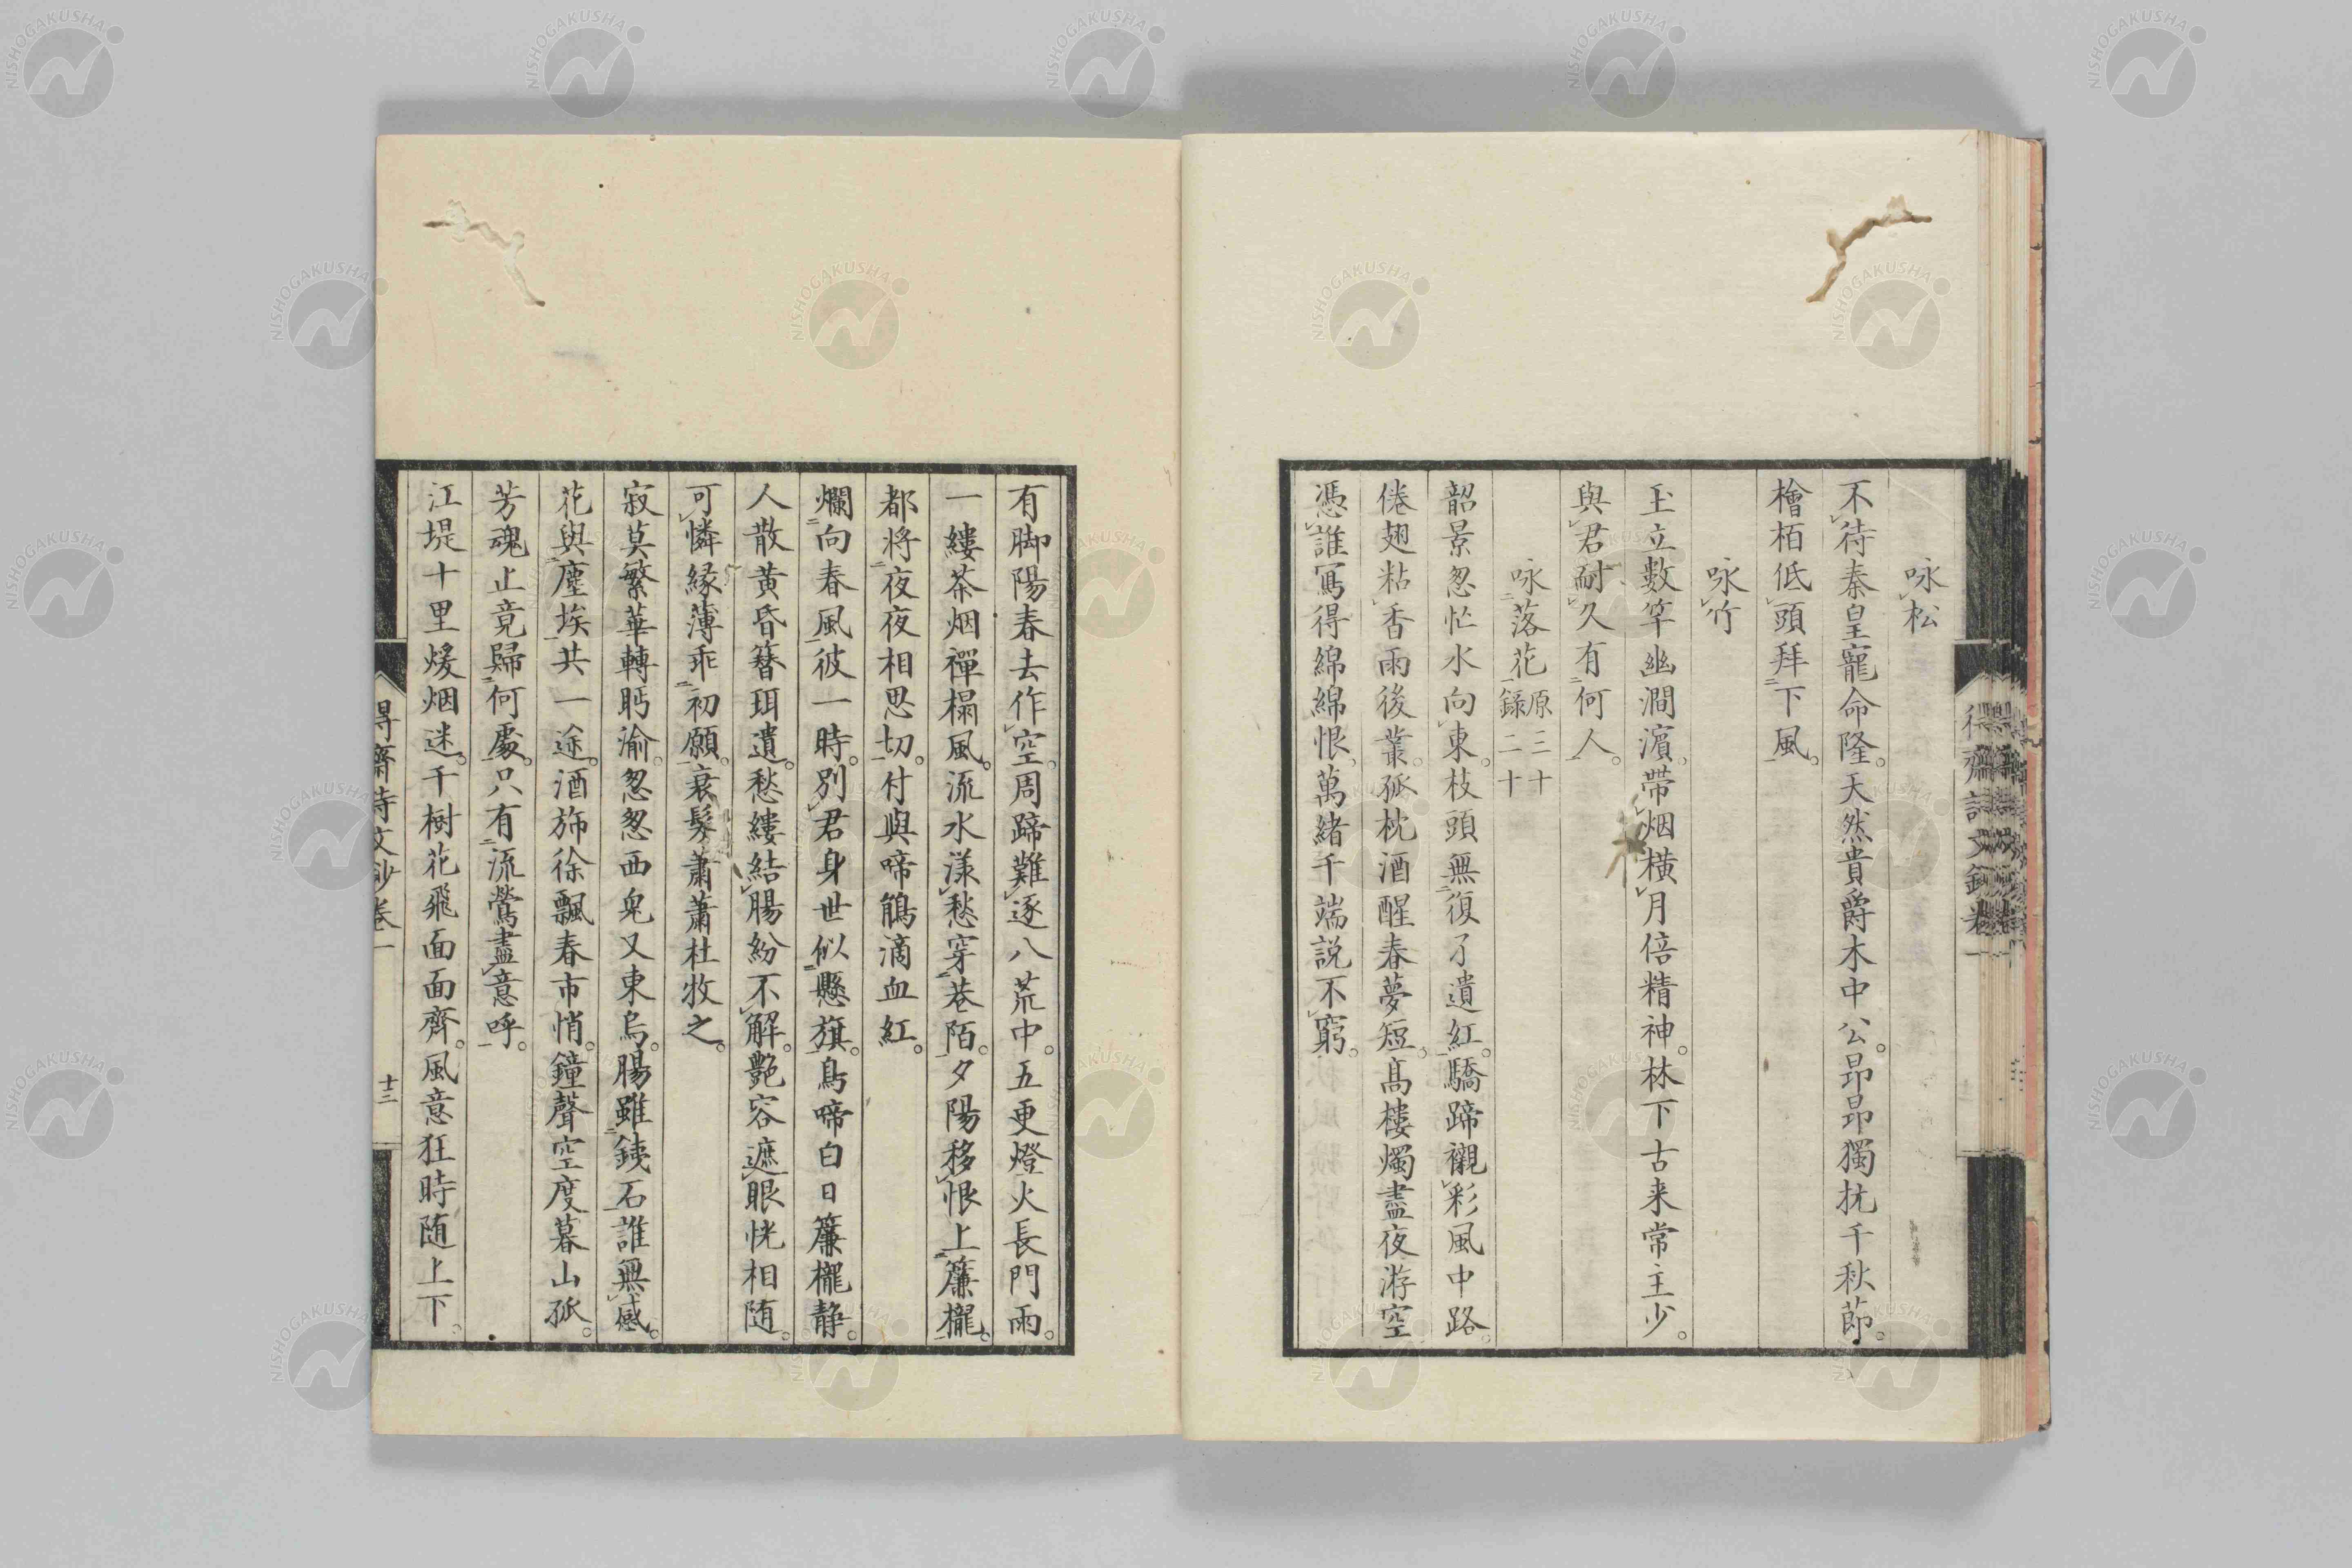 咏松
不待秦皇寵命隆。天然貴爵木中公。昂昂獨抗千秋節。
檜栢低頭拜下風。
咏竹
玉立數竿幽澗濵。帶烟橫月倍精神。林下古来常主少。
與君耐久有何人。
咏落花 原三十錄二十
韶景怱忙水向東。枝頭無復了遺紅。驕蹄襯彩風中路。
倦翅粘香雨後叢。孤枕酒醒春夢短。髙樓燭盡夜游空
憑誰寫得綿綿恨。萬緒千端説不窮。
有脚陽春去作空。周蹄難逐八荒中。五更燈火長門雨。
一縷茶烟禪榻風。流水漾愁穿巷陌。夕陽移恨上簾櫳。
都將夜夜相思切。付與啼鵑滴血紅。
爛向春風彼一時。別君身世似懸旗。鳥啼白日簾櫳静。
人散黄昏簪珥遺。愁縷結腸紛不解。艶容遮眼恍相随。
可憐緣薄乖初願。衰髮蕭蕭杜牧之。
寂莫繁華轉眄渝。怱怱西兔又東烏。腸雖銕石誰無感。
花與塵埃共一途。酒斾徐飄春市悄。鐘聲空度暮山孤。
芳魂止竟歸何處。只有流鶯盡意呼。
江堤十里煖烟迷。千樹花飛面面齊。風意狂時随上下。
得齋詩文鈔卷一
十三